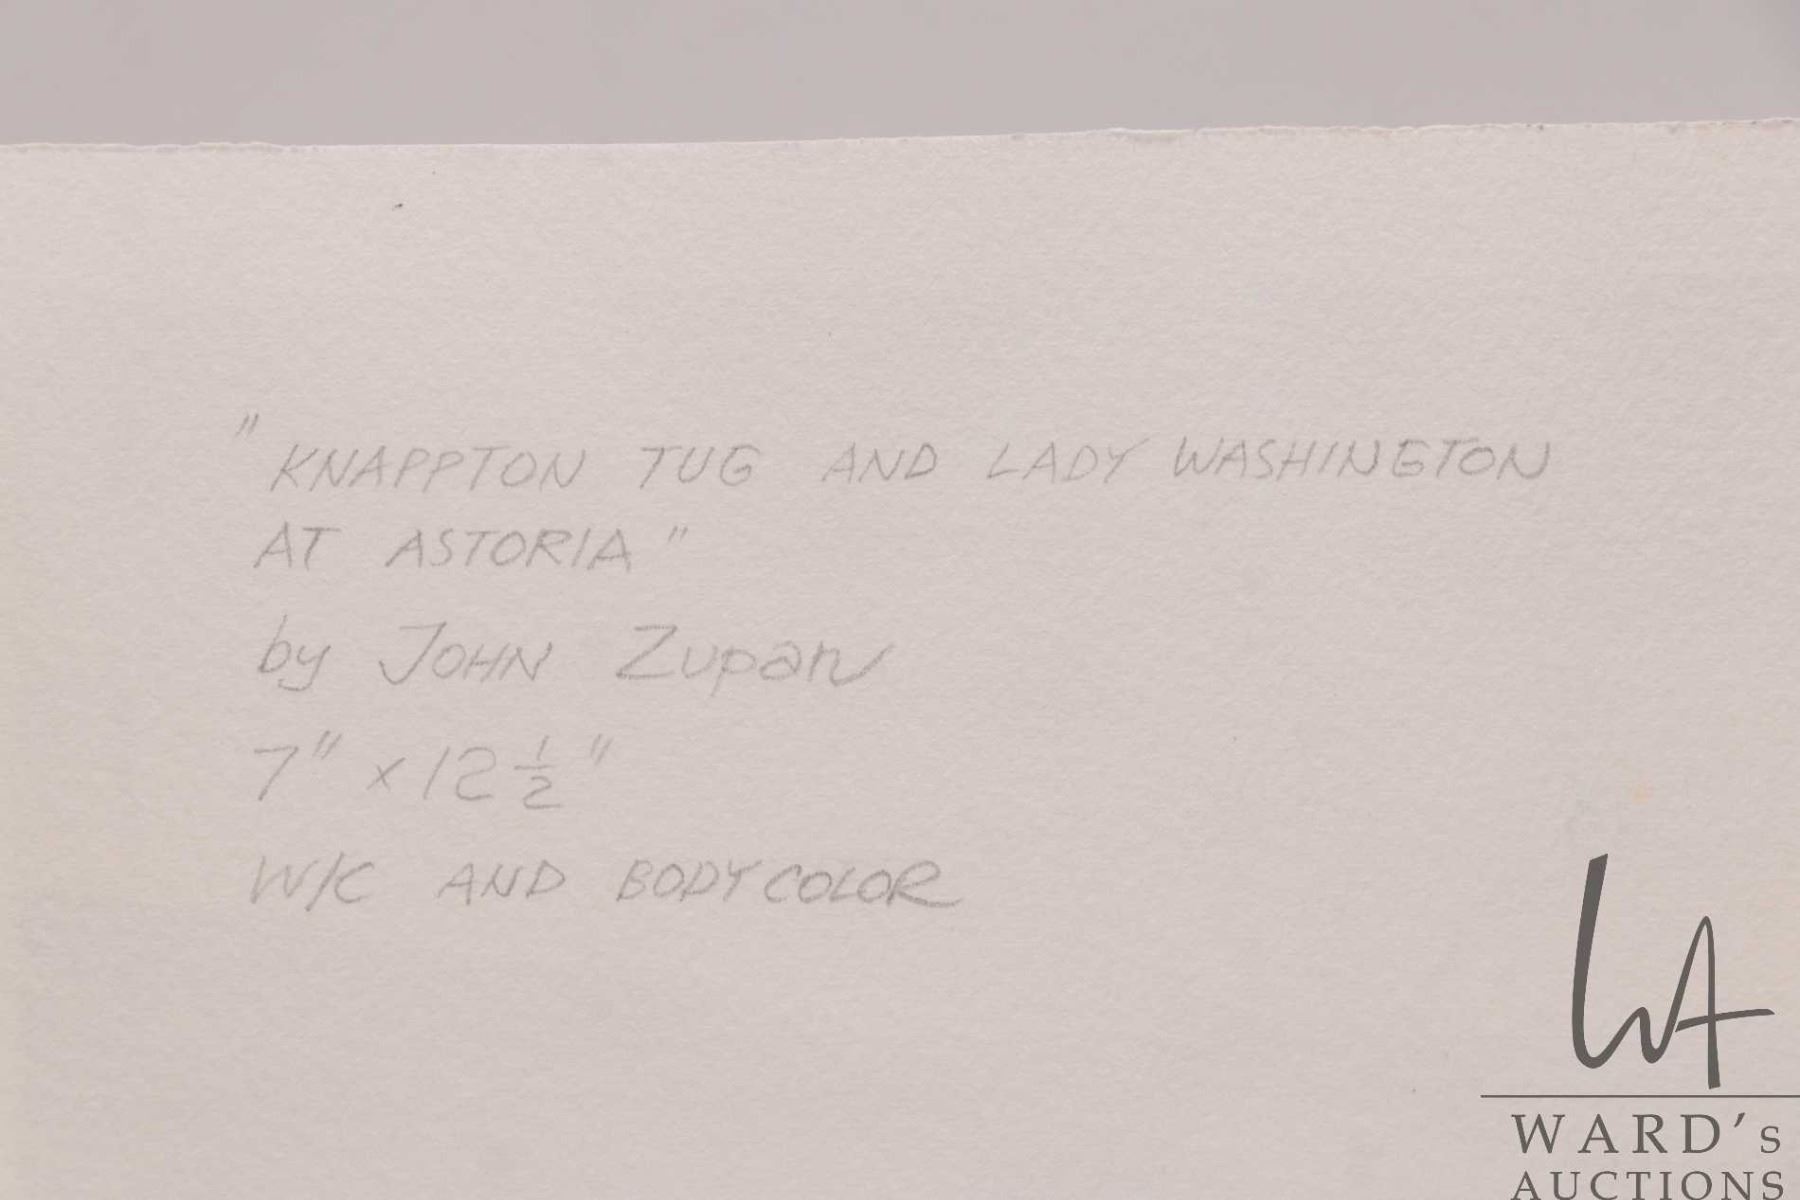 "KNAPPTON TUG AND LADY WASHINGTON
AT ASTORIA"
by JOHN Zupan
7" x 12 ½"
W/C AND BODYCOLOR
WA
WARD's
AUCTIONS